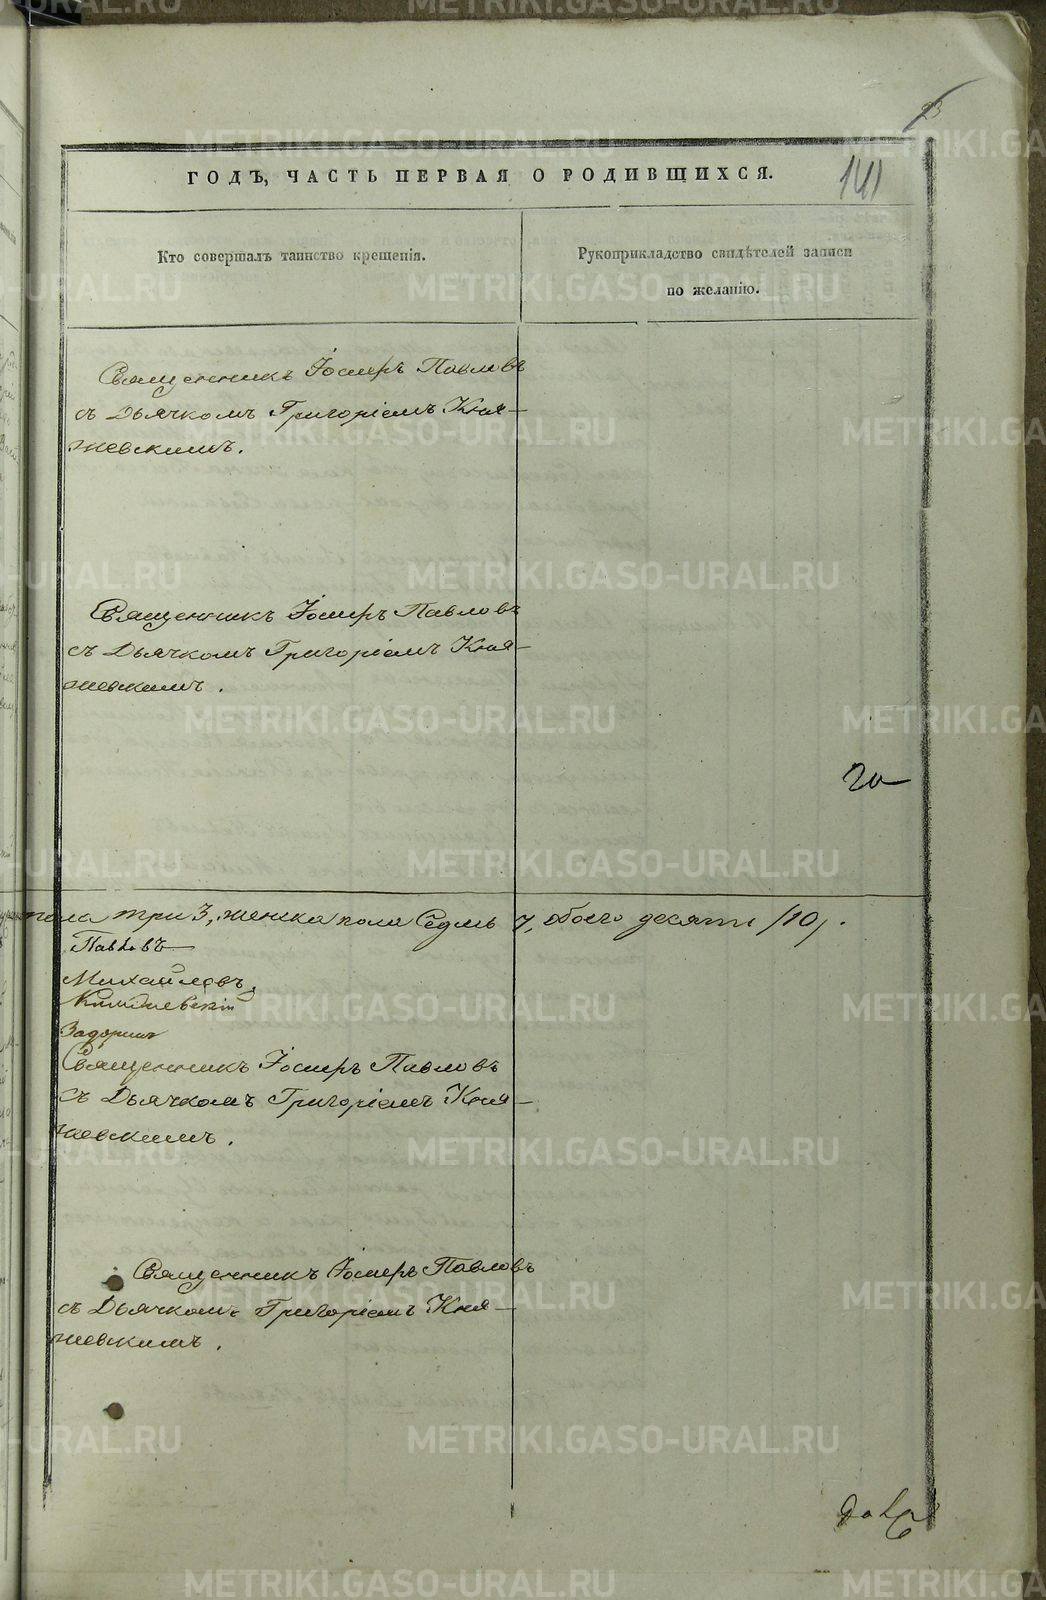 23
ГОДЪ, ЧАСТЬ ПЕРВАЯ О РОДИВШИХСЯ.
141
Кто совершалъ таинство крещенія.
Рукоприкладство свидѣтелей записи
по желанію.
Священникъ Іосифъ Павловъ
съ Дьячкомъ Григоріемъ Кня-
жевскимъ.
Священникъ Іосифъ Павловъ
съ Дьячкомъ Григоріемъ Кня-
жевскимъ.
пола три 3, женска пола Седмь 7, обоего десять /10/.
Павловъ
Михайловъ
Княжевскій
Священникъ Іосифъ Павловъ
Съ Дьячкомъ Григоріемъ Кня-
жевскимъ.
Священникъ Іосифъ Павловъ
съ Дьячкомъ Григоріемъ Кня-
жевскимъ.
METRIKI.GASO-URAL.RU